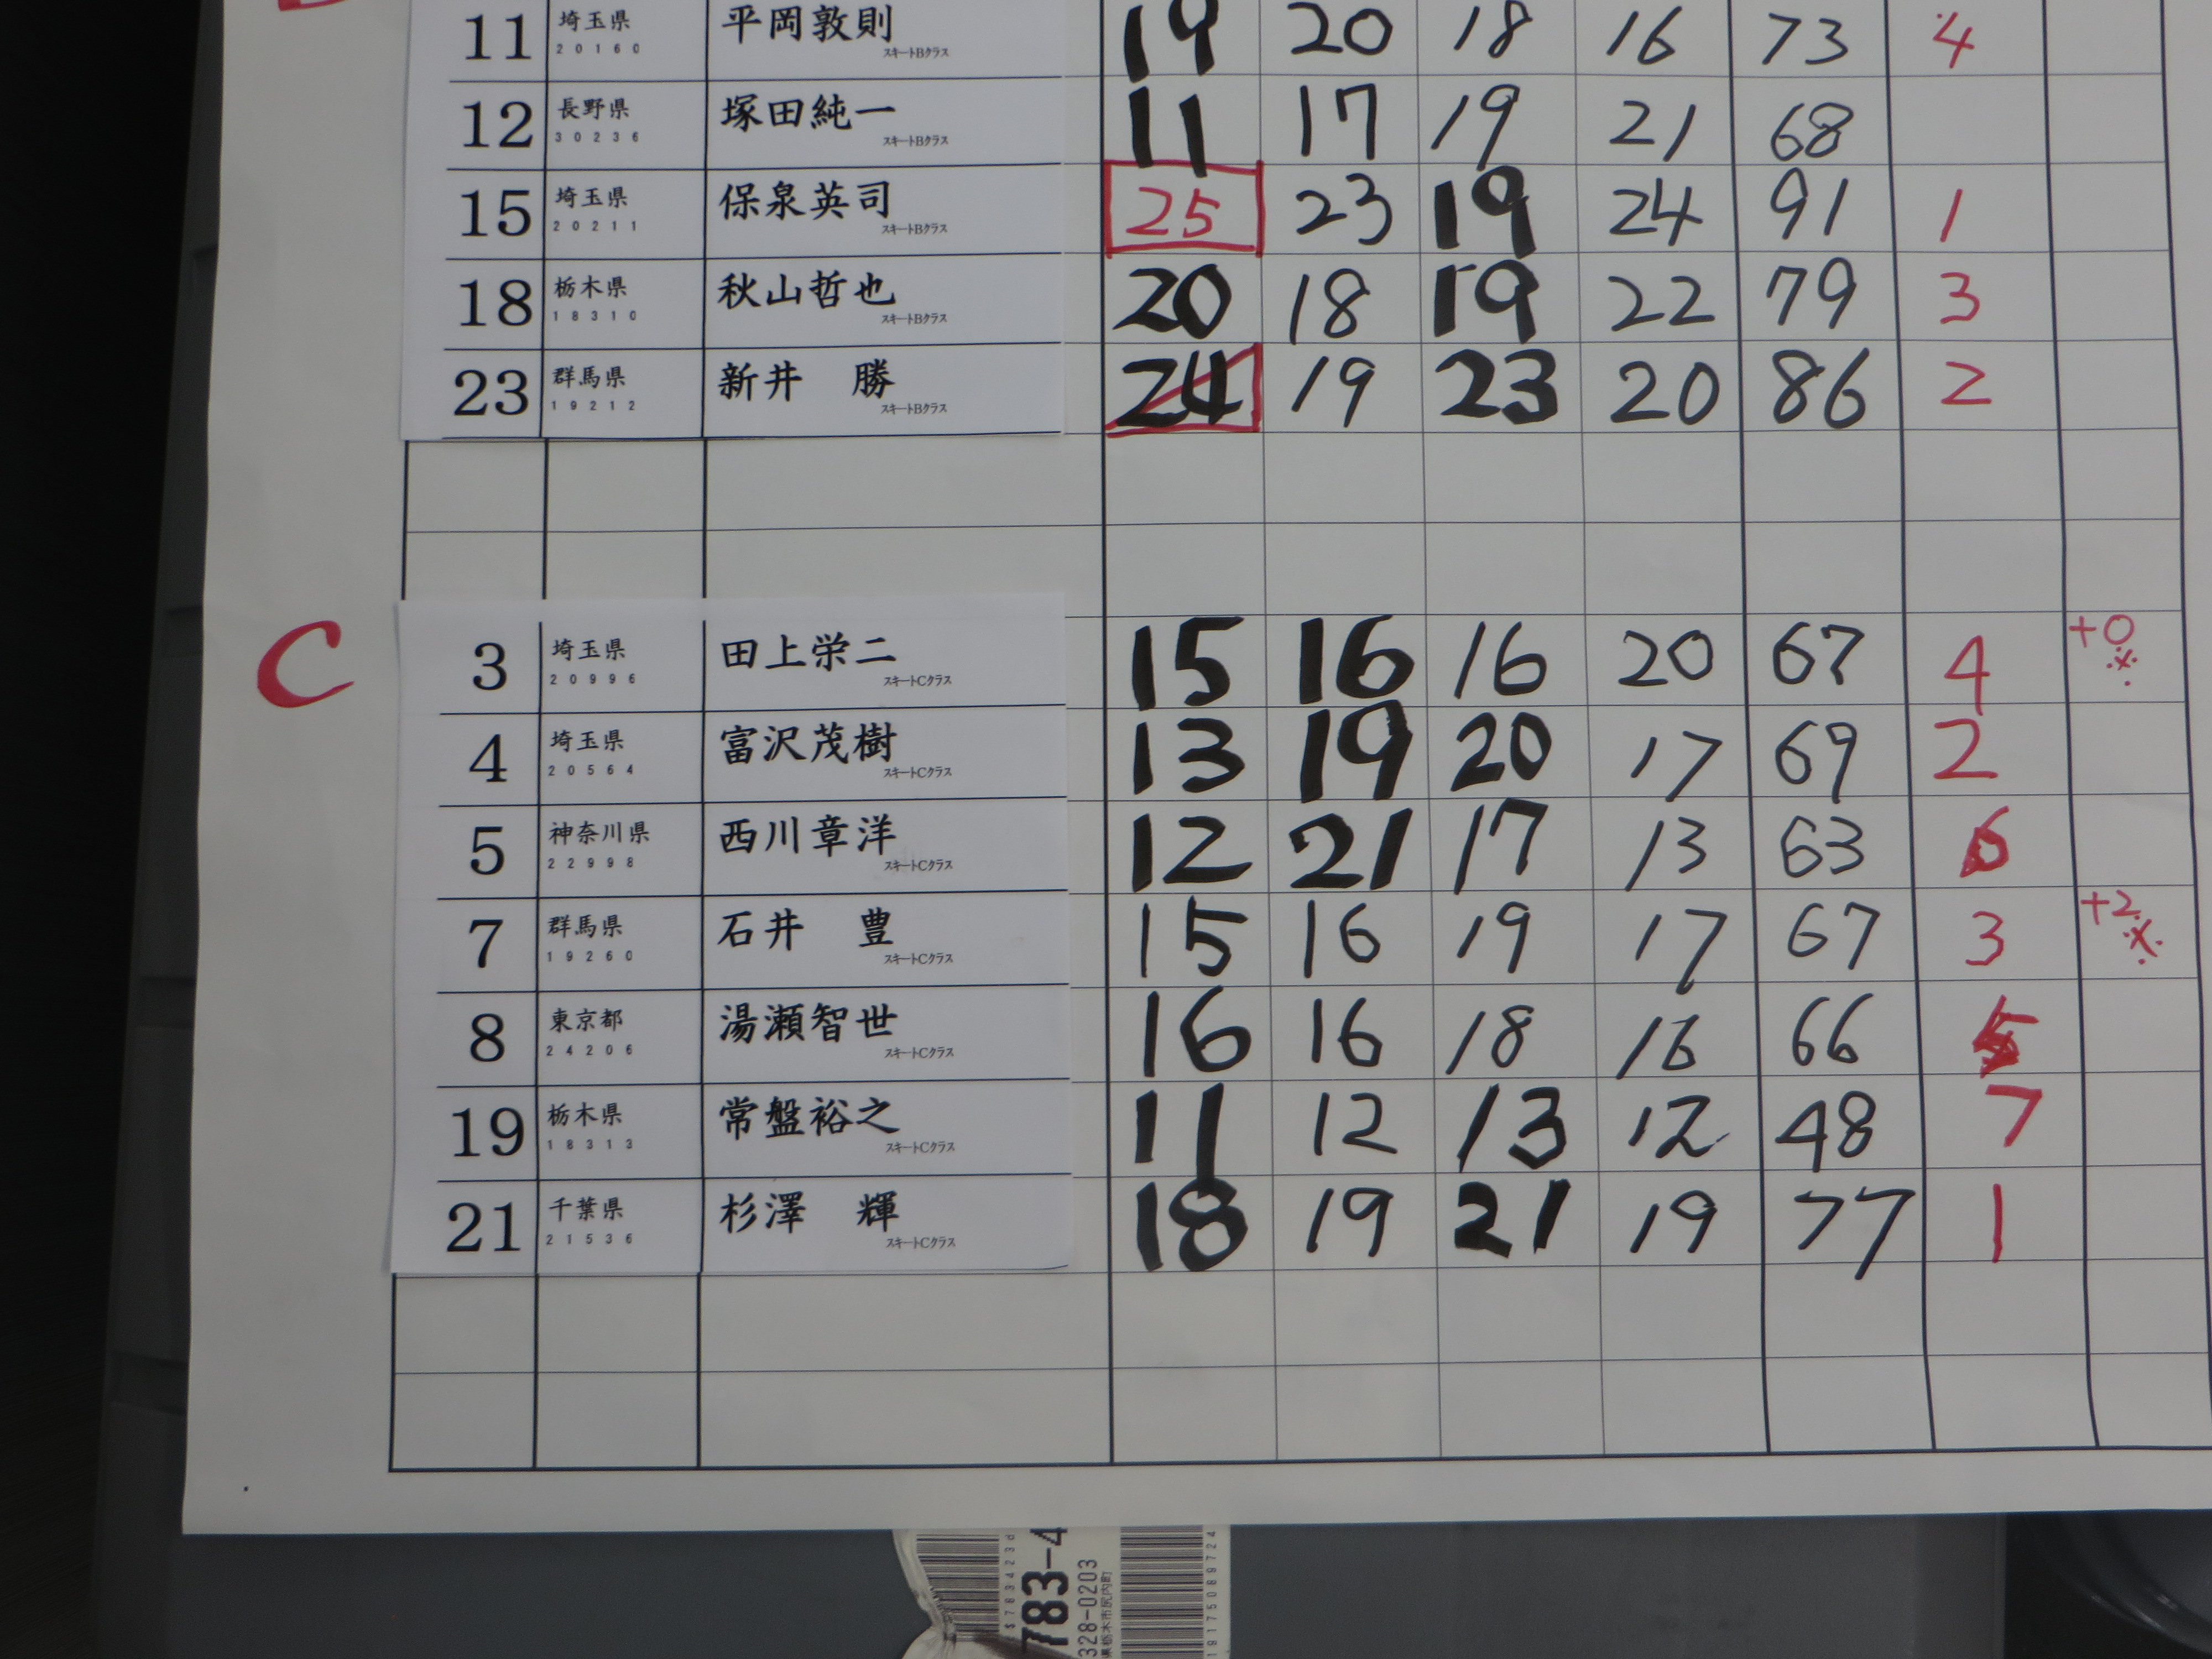 11 埼玉県 平岡敦則 19 20 18 16 73 4
20160 スキートBクラス
12 長野県 塚田純一 11 17 19 21 68
30236 スキートBクラス
15 埼玉県 保泉英司 25 23 19 24 91 1
20211 スキートBクラス
18 栃木県 秋山哲也 20 18 19 22 79 3
18310 スキートBクラス
23 群馬県 新井 勝 24 19 23 20 86 2
19212 スキートBクラス
C
3 埼玉県 田上栄二 15 16 16 20 67 4 +0 ※
20996 スキートCクラス
4 埼玉県 富沢茂樹 13 19 20 17 69 2
20564 スキートCクラス
5 神奈川県 西川章洋 12 21 17 13 63 6
22998 スキートCクラス
7 群馬県 石井 豊 15 16 19 17 67 3 +2 ※
19260 スキートCクラス
8 東京都 湯瀬智世 16 16 18 16 66 5
24206 スキートCクラス
19 栃木県 常盤裕之 11 12 13 12 48 7
18313 スキートCクラス
21 千葉県 杉澤 輝 18 19 21 19 77 1
21536 スキートCクラス
783-4
328-0203